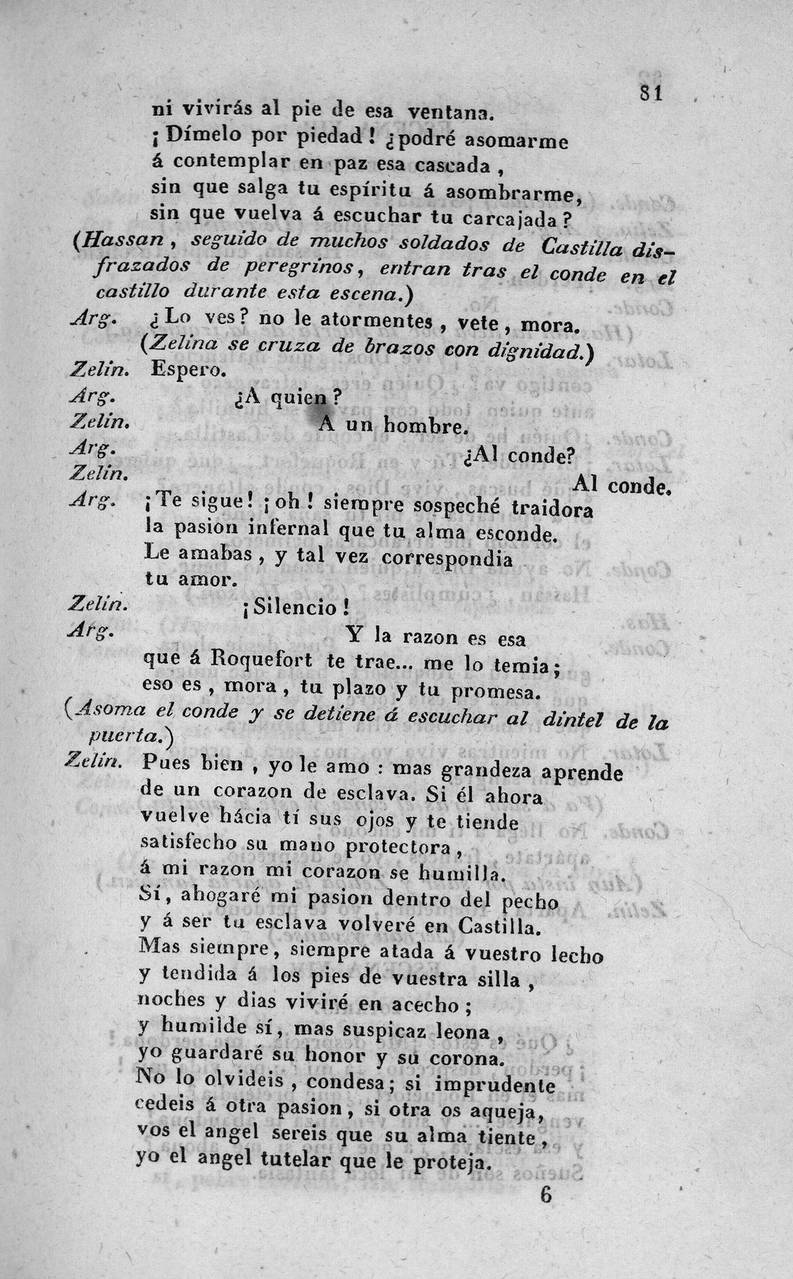 81
ni vivirás al pie de esa ventana.
¡Dímelo por piedad! ¿podré asomarme
á contemplar en paz esa cascada,
sin que salga tu espíritu á asombrarme,
sin que vuelva á escuchar tu carcajada?
(Hassan, seguido de muchos soldados de Castilla dis-
frazados de peregrinos, entran tras el conde en el
castillo durante esta escena.)
Arg. ¿Lo ves? no le atormentes, vete, mora.
(Zelina se cruza de brazos con dignidad.)
Zelin. Espero.
Arg. ¿A quien?
Zelin. A un hombre.
Arg. ¿Al conde?
Zelin. Al conde.
Arg. ¡Te sigue! ¡oh! siempre sospeché traidora
la pasion infernal que tu alma esconde.
Le amabas, y tal vez correspondia
tu amor.
Zelin. ¡Silencio!
Arg. Y la razon es esa
que á Roquefort te trae... me lo temia;
eso es, mora, tu plazo y tu promesa.
(Asoma el conde y se detiene á escuchar al dintel de la
puerta.)
Zelin. Pues bien, yo le amo: mas grandeza aprende
de un corazon de esclava. Si él ahora
vuelve hácia tí sus ojos y te tiende
satisfecho su mano protectora,
á mi razon mi corazon se humilla.
Sí, ahogaré mi pasion dentro del pecho
y á ser tu esclava volveré en Castilla.
Mas siempre, siempre atada á vuestro lecho
y tendida á los pies de vuestra silla,
noches y dias viviré en acecho;
y humilde sí, mas suspicaz leona,
yo guardaré su honor y su corona.
No lo olvideis, condesa; si imprudente
cedeis á otra pasion, si otra os aqueja,
vos el angel sereis que su alma tiente,
yo el angel tutelar que le proteja.
6